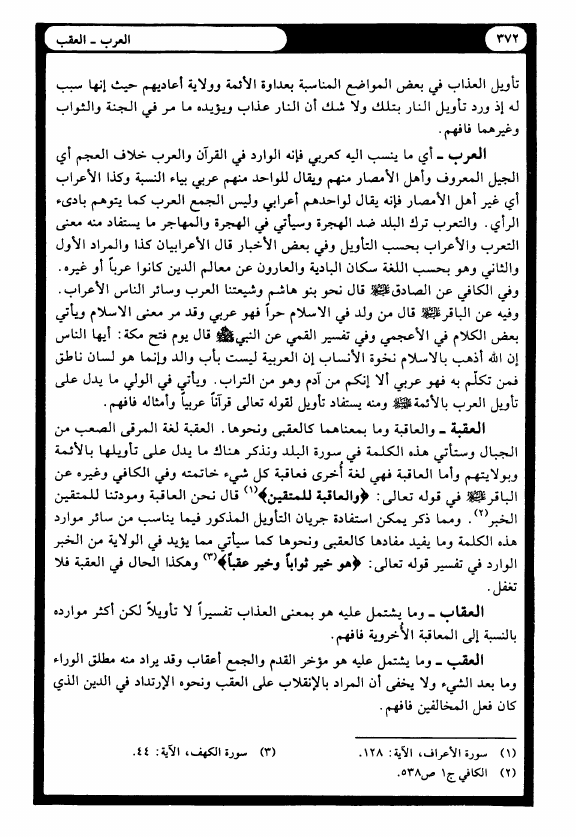 ٣٧٢
العرب ـ العقب
تأويل العذاب في بعض المواضع المناسبة بعداوة الأئمة وولاية أعاديهم حيث إنها سبب
له إذ ورد تأويل النار بتلك ولا شك أن النار عذاب ويؤيده ما مر في الجنة والثواب
وغيرهما فافهم.
العرب ـ أي ما ينسب اليه كعربي فإنه الوارد في القرآن والعرب خلاف العجم أي
الجيل المعروف وأهل الأمصار منهم ويقال للواحد منهم عربي بياء النسبة وكذا الأعراب
أي غير أهل الأمصار فإنه يقال لواحدهم أعرابي وليس الجمع العرب كما يتوهم بادىء
الرأي. والتعرب ترك البلد ضد الهجرة وسيأتي في الهجرة والمهاجر ما يستفاد منه معنى
التعرب والأعراب بحسب التأويل وفي بعض الأخبار قال الأعرابيان كذا والمراد الأول
والثاني وهو بحسب اللغة سكان البادية والعارون عن معالم الدين كانوا عرباً أو غيره.
وفي الكافي عن الصادق ﷺ قال نحو بنو هاشم وشيعتنا العرب وسائر الناس الأعراب.
وفيه عن الباقر ﷺ قال من ولد في الاسلام حراً فهو عربي وقد مر معنى الاسلام ويأتي
بعض الكلام في الأعجمي وفي تفسير القمي عن النبي ﷺ قال يوم فتح مكة: أيها الناس
إن الله أذهب بالاسلام نخوة الأنساب إن العربية ليست بأب والد وإنما هو لسان ناطق
فمن تكلّم به فهو عربي ألا إنكم من آدم وهو من التراب. ويأتي في الولي ما يدل على
تأويل العرب بالأئمة ﷺ ومنه يستفاد تأويل لقوله تعالى قرآناً عربياً وأمثاله فافهم.
العقبة ـ والعاقبة وما بمعناهما كالعقبى ونحوها. العقبة لغة المرقى الصعب من
الجبال وستأتي هذه الكلمة في سورة البلد ونذكر هناك ما يدل على تأويلها بالأئمة
وبولايتهم وأما العاقبة فهي لغة أُخرى فعاقبة كل شيء خاتمته وفي الكافي وغيره عن
الباقر ﷺ في قوله تعالى: ﴿والعاقبة للمتقين﴾(١) قال نحن العاقبة ومودتنا للمتقين
الخبر(٢). ومما ذكر يمكن استفادة جريان التأويل المذكور فيما يناسب من سائر موارد
هذه الكلمة وما يفيد مفادها كالعقبى ونحوها كما سيأتي مما يؤيد في الولاية من الخبر
الوارد في تفسير قوله تعالى: ﴿هو خير ثواباً وخير عقباً﴾(٣) وهكذا الحال في العقبة فلا
تغفل.
العقاب ـ وما يشتمل عليه هو بمعنى العذاب تفسيراً لا تأويلاً لكن أكثر موارده
بالنسبة إلى المعاقبة الأُخروية فافهم.
العقب ـ وما يشتمل عليه هو مؤخر القدم والجمع أعقاب وقد يراد منه مطلق الوراء
وما بعد الشيء ولا يخفى أن المراد بالإنقلاب على العقب ونحوه الإرتداد في الدين الذي
كان فعل المخالفين فافهم.
(١) سورة الأعراف، الآية: ١٢٨.
(٢) الكافي ج١ ص٥٣٨.
(٣) سورة الكهف، الآية: ٤٤.